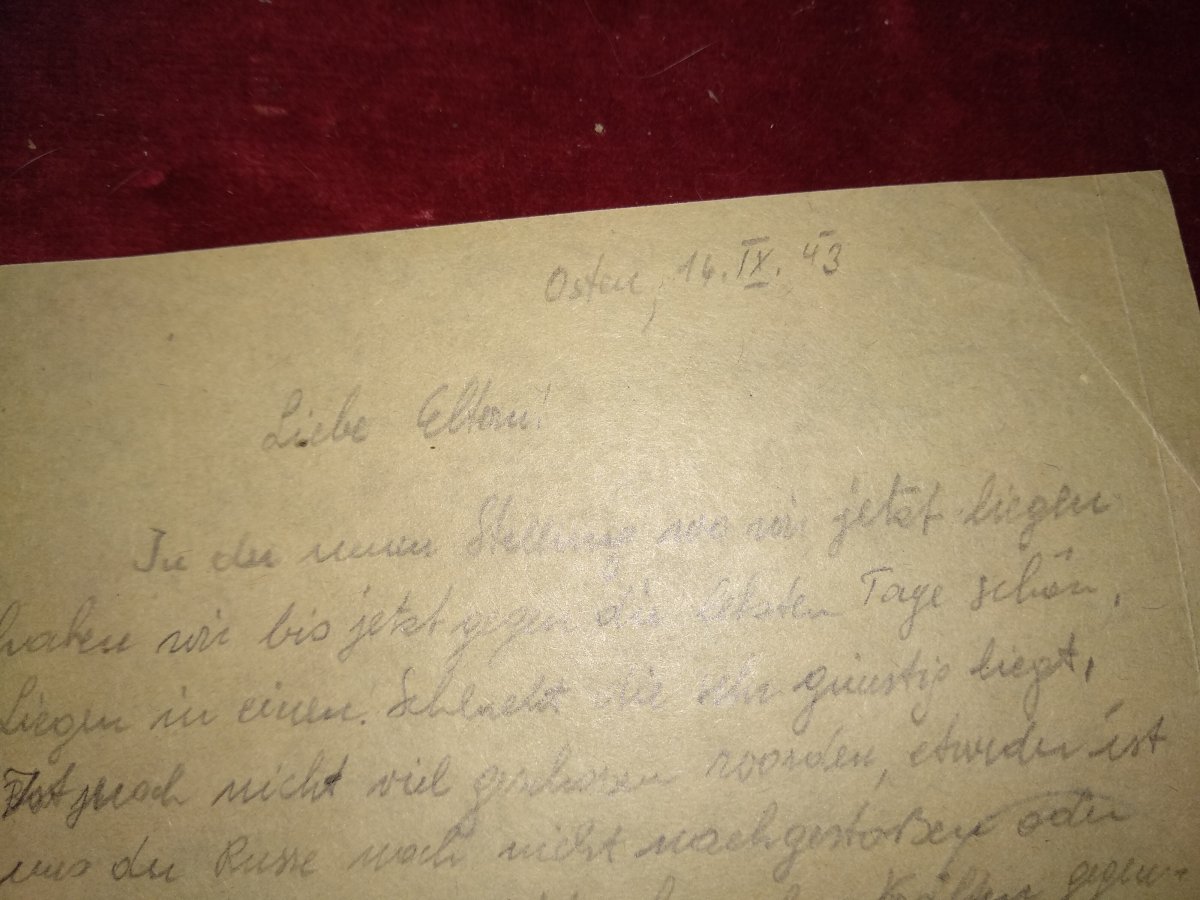 Osten, 14. IX. 43
Liebe Eltern!
In der neuen Stellung wo wir jetzt liegen
haben wir bis jetzt gegen die letzten Tage schön,
Liegen in einen. Schlucht die sehr günstig liegt,
Ist noch nicht viel geschossen worden, etweder ist
uns der Russe noch nicht nachgestoßen oder
Kräften gegen-